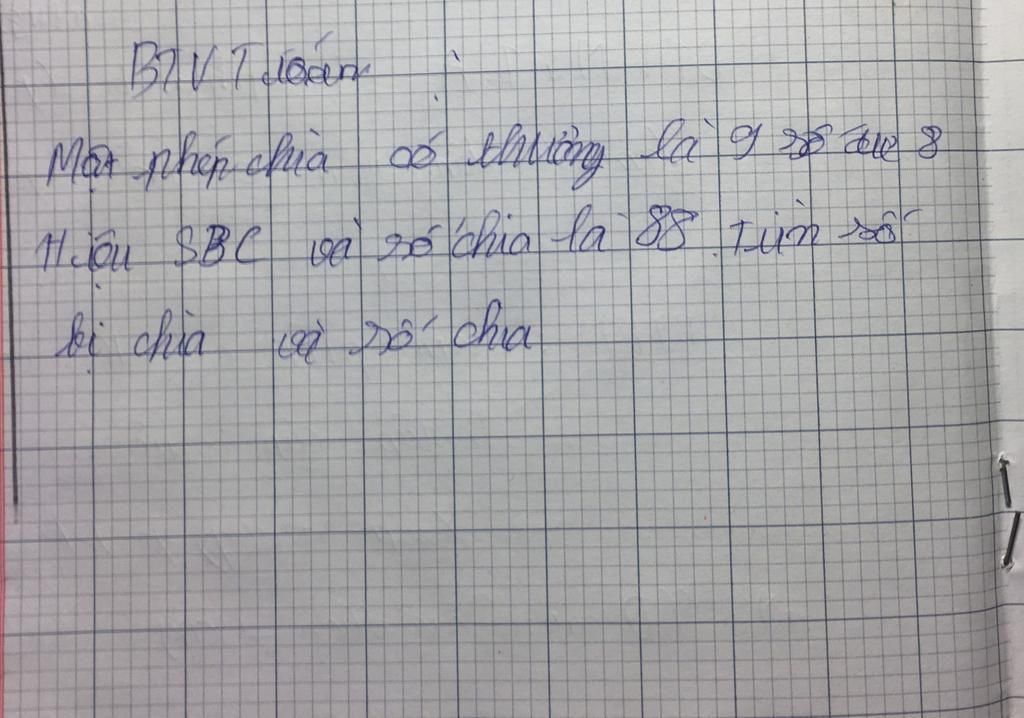 BTVT Toán
Một phép chia có thương là 9 số dư 8
Hiệu SBC và số chia là 88. Tìm số
bị chia và số chia